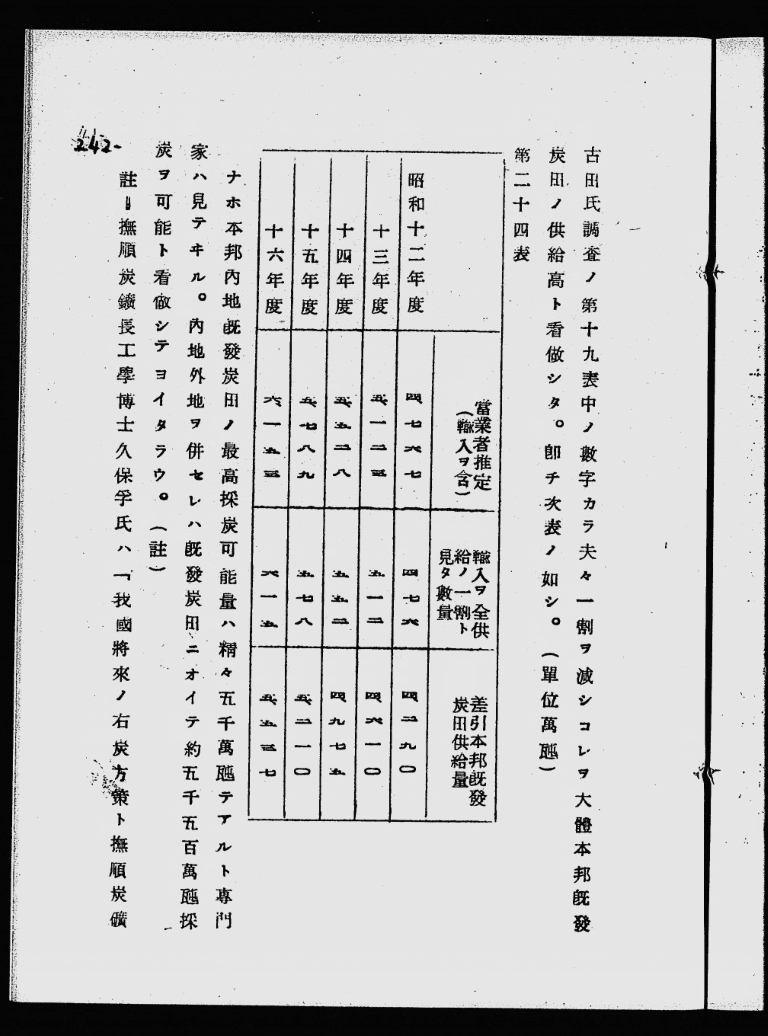 古田氏調査ノ第十九表中ノ數字カラ夫々一割ヲ減シコレヲ大體本邦旣發
炭田ノ供給高ト看做シタ。卽チ次表ノ如シ。(單位萬瓲)
第二十四表
當業者推定
(輸入ヲ含)
輸入ヲ全供
給ノ一割ト
見タ數量
差引本邦旣發
炭田供給量
昭和十二年度 四、七六七 四七六 四、二九〇
十三年度 五、一二三 五一二 四、六一〇
十四年度 五、五二八 五五二 四、九七五
十五年度 五、七八九 五七八 五、二一〇
十六年度 六、一五三 六一五 五、五三七
ナホ本邦內地旣發炭田ノ最高採炭可能量ハ精々五千萬瓲テアルト專門
家ハ見テヰル。內地外地ヲ併セレハ旣發炭田ニオイテ約五千五百萬瓲採
炭ヲ可能ト看做シテヨイタラウ。(註)
註‖撫順炭鑛長工學博士久保孚氏ハ「我國將來ノ石炭方策ト撫順炭鑛
242-